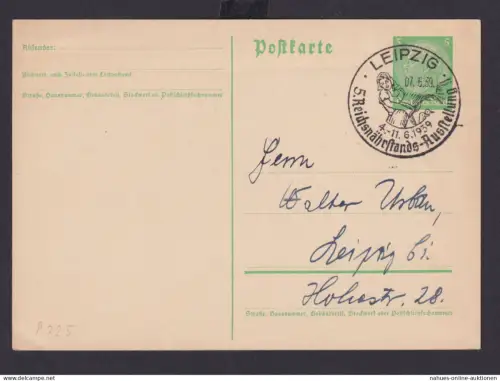 Absender:
Wohnort, auch Zustell- oder Leitpostamt
Straße, Hausnummer, Gebäudeteil, Stockwerk od. Postschließfachnummer
Postkarte
5
LEIPZIG
07.6.39
5. Reichsnährstands-Ausstellung
4.-11.6.1939
Herrn
Walter Urban,
Leipzig C1.
Hohestr. 28.
Straße, Hausnummer, Gebäudeteil, Stockwerk oder Postschließfachnummer
P.225
www.nahues-online-auktionen.de